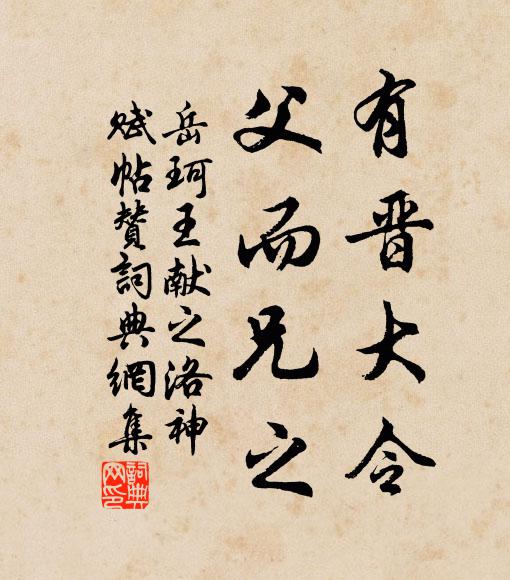 有晋大令
父而兄之
岳珂王献之洛神
赋帖贊詞典網集
詞典
网印